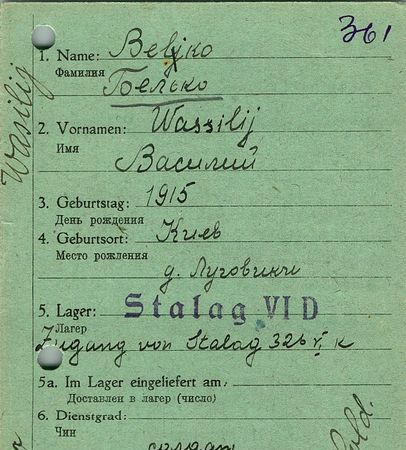 361
Wassilij
1. Name: Beljko
Фамилия
Белько
2. Vornamen: Wassilij
Имя
Василий
3. Geburtstag: 1915
День рождения
4. Geburtsort: Киев
Место рождения
д. Луговички
5. Lager: Stalag VI D
Лагер
Zugang von Stalag 326 VI K
5a. Im Lager eingeliefert am:
Доставлен в лагер (число)
6. Dienstgrad:
Чин